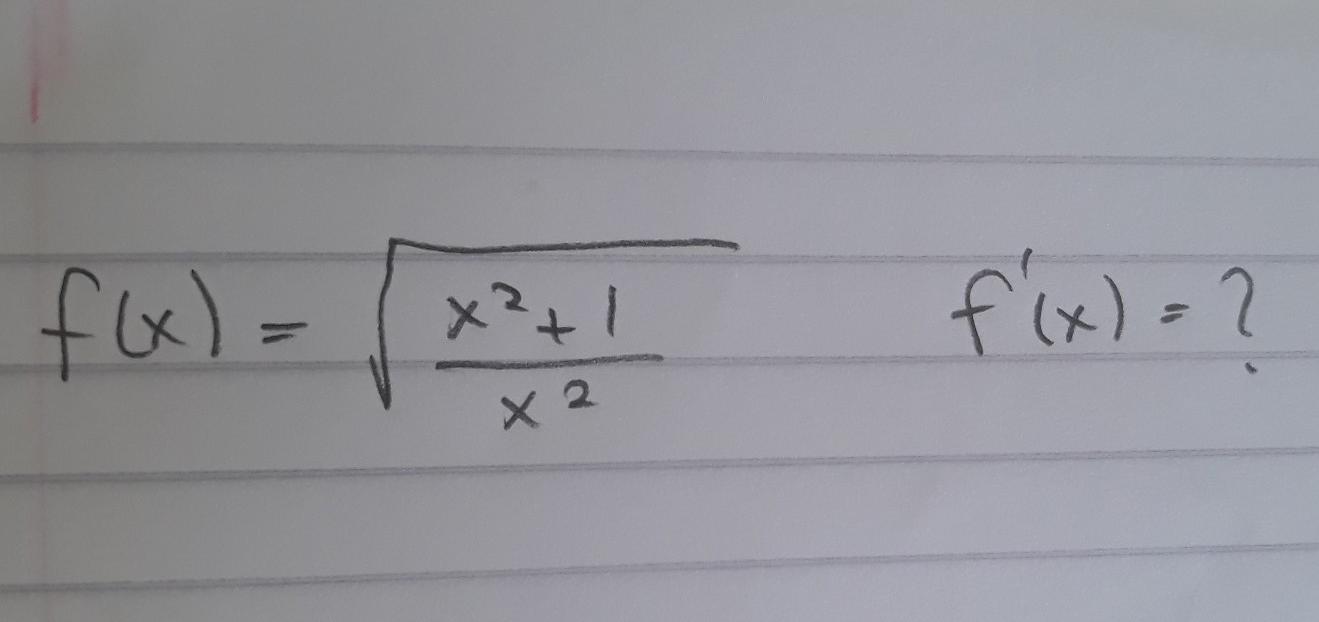 f(x) = √((x²+1)/x²) f'(x) = ?